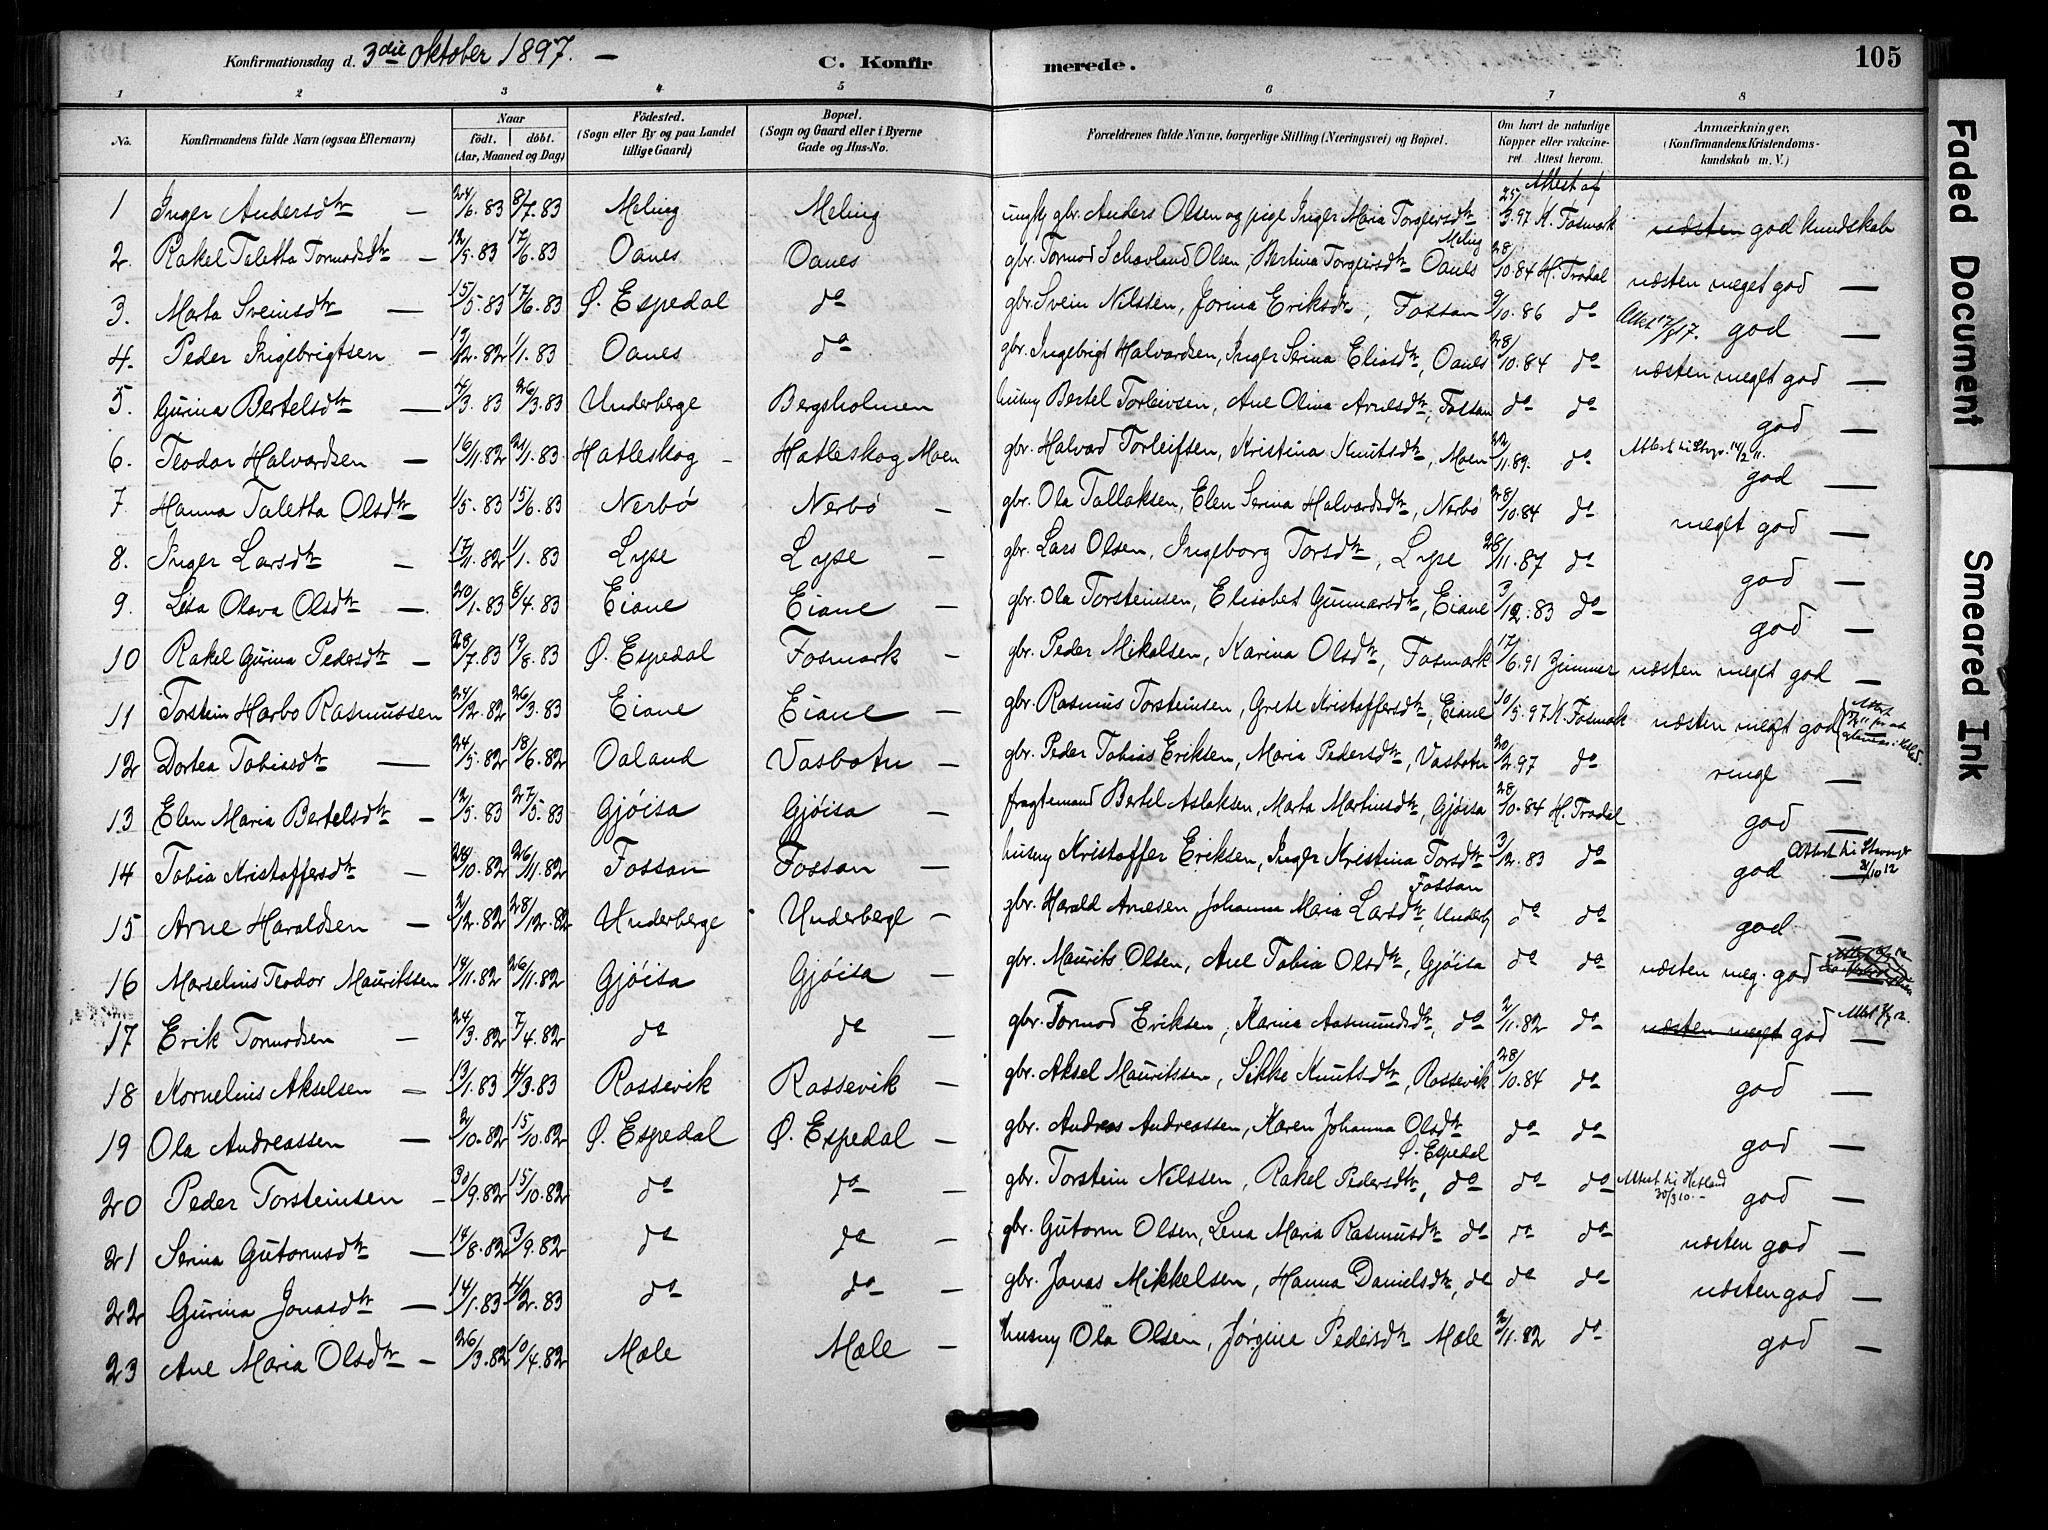 Konfirmationsdag d. 3die Oktober 1897. — C. Konfirmerede. 105
1 2 3 4 5 6 7 8
No. Konfirmandens fulde Navn (ogsaa Efternavn) Naar født. døbt. (Aar, Maaned og Dag) Fødested. (Sogn eller By og paa Landet tillige Gaard) Bopæl. (Sogn og Gaard eller i Byerne Gade og Hus-No. Forældrenes fulde Navne, borgerlige Stilling (Næringsvei) og Bopæl. Om havt de naturlige Kopper eller vakcineret. Attest herom. Anmærkninger. (Konfirmandens Kristendomskundskab m. V.)
Attest af
1 Inger Andersdtr — 24/6.83 8/7.83 Meling Meling ungk. gbr. Anders Olsen og pige Inger Maria Torgersdtr Meling 25/3.97 K. Fosmark næsten god kundskab
2. Rakel Taletta Tormodsdtr — 12/5.83 17/6.83 Oanes Oanes gbr. Tormod Schavland Olsen, Bertina Torgersdtr Oanes 28/10.84 H. Trodal næsten meget god —
3. Marta Sveinsdtr — 15/5.83 17/6.83 Ø. Espedal do gbr. Svein Nilssen, Jorina Eriksdtr, Fossan 9/10.86 do god —
4. Peder Ingebrigtsen — 19/12.82 1/1.83 Oanes do gbr. Ingebrigt Halvardsen, Inger Serina Eliasdtr, Oanes 28/10.84 do næsten meget god —
5. Gurina Bertelsdtr — 4/3.83 26/3.83 Underberge Bergsholmen husmy Bertel Torleivsen, Ane Olina Arnesdtr, Fossan do do god —
6. Teodor Halvardsen — 16/11.82 21/1.83 Hatleskog — Hatleskog Moen gbr. Halvad Torleifsen, Kristina Knutsdtr, Moen 22/11.89. do god —
7. Hanna Taletta Olsdtr 1/5.83 15/6.83 Nerbö Nerbö — gbr. Ola Tallaksen, Elen Serina Halvardsdtr, Nerbö 28/10.84 do meget god —
8. Inger Larsdtr — 17/11.82 1/1.83 Lyse Lyse — gbr. Lars Olsen, Ingeborg Torsdtr, Lyse 28/11.87 do god —
9. Lisa Olava Olsdtr — 20/1.83 8/4.83 Eiane Eiane — gbr. Ola Torsteinsen, Elisabet Gunnarsdtr, Eiane 3/12.83 do god —
10 Rakel Gurina Pedersdtr — 28/7.83 19/8.83 Ø. Espedal Fosmark — gbr. Peder Mikalsen, Karina Olsdtr, Fosmark 17/6.91 Zimmer næsten meget god —
11 Torstein Harbo Rasmussen 24/12.82 26/3.83 Eiane Eiane — gbr. Rasmus Torsteinsen, Grete Kristoffersdtr, Eiane 10/5.97 K. Fosmark næsten meget god
12 Dortea Tobiasdtr — 24/5.82 18/6.82 Oaland Vasbotn — gbr. Peder Tobias Eriksen, Maria Pedersdtr, Vasbotn 20/2.97 do ringe —
13 Elen Maria Bertelsdtr — 12/5.83 27/5.83 Gjöisa Gjöisa — fragtemand Bertel Aslaksen, Marta Martinsdtr, Gjöisa 28/10.84 H. Trodal god —
14 Tobia Kristoffersdtr — 28/10.82 26/11.82 Fossan Fossan — husmy Kristoffer Eriksen, Inger Kristina Torsdtr Fossan 3/12.83 do god — Attest til Stavanger 31/10 12
15 Arne Haraldsen — 2/12.82 28/12.82 Underberge Underberge — gbr. Harald Arnesen Johanna Maria Larsdtr, Underb. do do god —
16 Marselius Teodor Mauritssen 14/11.82 26/11.82 Gjöisa Gjöisa — gbr. Maurits Olsen, Ane Tobia Olsdtr, Gjöisa do do næsten meg. god
17 Erik Tormodsen — 24/3.82 7/4.82 do do — gbr. Tormod Eriksen, Karina Aasmundsdtr, do 2/11.82 do næsten meget god —
18 Kornelius Akselsen — 13/1.83 4/3.83 Rossevik Rossevik — gbr. Aksel Mauritssen, Sikke Knutsdtr, Rossevik 28/10.84 do god —
19 Ola Andreassen — 2/10.82 15/10.82 Ø. Espedal Ø. Espedal — gbr. Andreas Andreassen, Karen Johanna Olsdtr Ø. Espedal do do god —
20 Peder Torsteinsen — 30/9.82 15/10.82 do do — gbr. Torstein Nilssen, Rakel Pedersdtr, do do do Attest til Hetland 20/3 10. — god —
21 Serina Gutormsdtr — 14/8.82 3/9.82 do do — gbr. Gutorm Olsen, Lena Maria Rasmusdtr do do do næsten god —
22 Gurina Jonasdtr — 14/1.83 4/2.83 do do — gbr. Jonas Mikkelsen, Hanna Danielsdtr, do do do næsten god —
23 Ane Maria Olsdtr — 26/3.82 10/4.82 Mæle Mæle — husmy Ola Olsen, Jørgine Pedersdtr Mæle 2/11.82 do god —
Faded Document
Smeared Ink